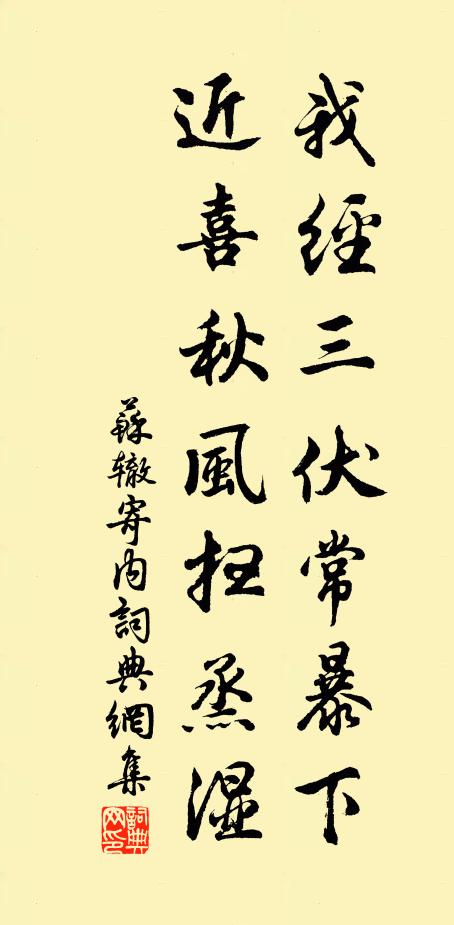 我經三伏常暴下
近喜秋風扫蒸湿
蘇辙寄内詞典網集
詞典网印